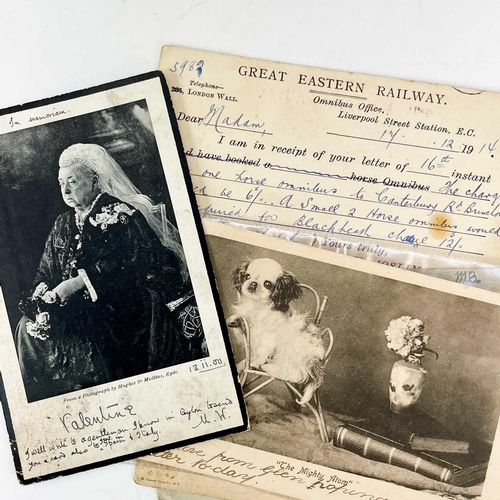 In memoriam
From a Photograph by Hughes & Mullins, Ryde.
12.11.00
Valentine
I will write to a gentleman I know in Ceylon
you a card also to Spain & Italy.
5982
GREAT EASTERN RAILWAY.
Telephone—
LONDON WALL.
Omnibus Office,
Liverpool Street Station, E.C.
17. 12 1914
Dear Madam,
I am in receipt of your letter of 16th instant
and have booked a horse Omnibus The charge
one horse omnibus to Canterbury Rd
be 6/-. A Small 2 Horse omnibus would
for Blackheath charge 12/-
Yours truly,
"The Mighty Atom"
from
to day.